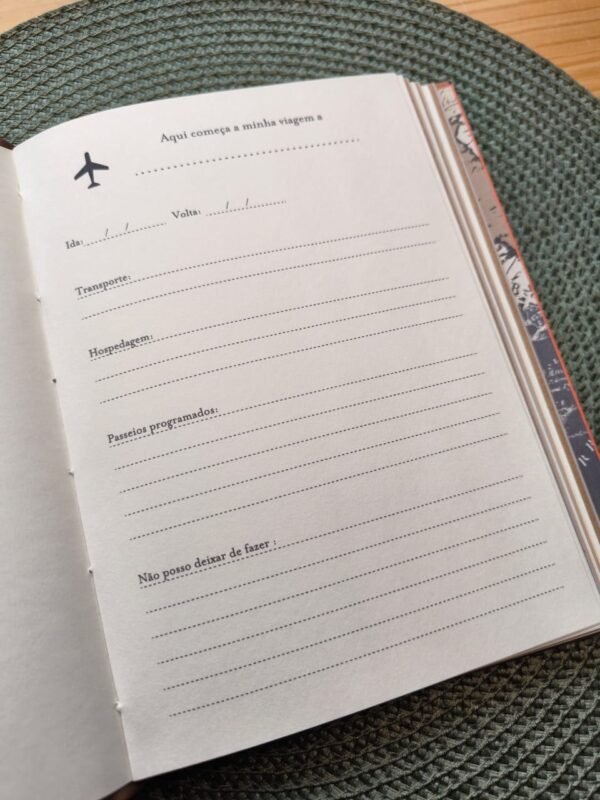 Aqui começa a minha viagem a
Ida: / / Volta: / /
Transporte:
Hospedagem:
Passeios programados:
Não posso deixar de fazer :